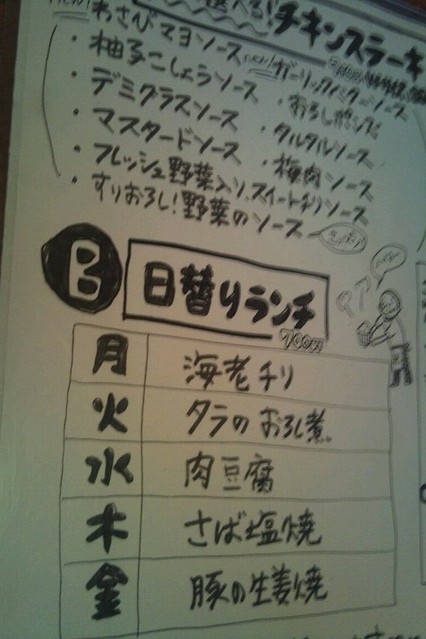 選べる!チキンステーキ
わさびマヨソース
ガーリックバターソース
・柚子こしょうソース
・おろしポン酢
・デミグラスソース
・タルタルソース
・マスタードソース
・梅肉ソース
・フレッシュ野菜入り、スイートチリソース
・すりおろし!野菜のソース
B 日替りランチ
700円
月 海老チリ
火 タラのおろし煮
水 肉豆腐
木 さば塩焼
金 豚の生姜焼